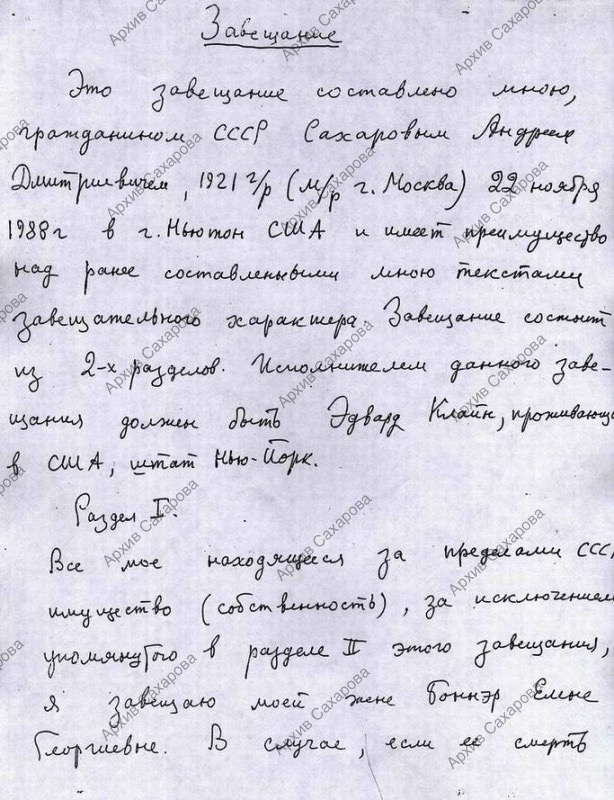 Завещание
Это завещание составлено мною,
гражданином СССР Сахаровым Андреем
Дмитриевичем, 1921 г/р (м/р г. Москва) 22 ноября
1988 г в г. Ньютон США и имеет преимущество
над ранее составленными мною текстами
завещательного характера. Завещание состоит
из 2-х разделов. Исполнителем данного заве-
щания должен быть Эдвард Клайн, проживающ
в США, штат Нью-Йорк.
Раздел I.
Все мое находящееся за пределами СССР
имущество (собственность), за исключением
упомянутого в разделе II этого завещания,
я завещаю моей жене Боннэр Елене
Георгиевне. В случае, если ее смерть
Архив Сахарова